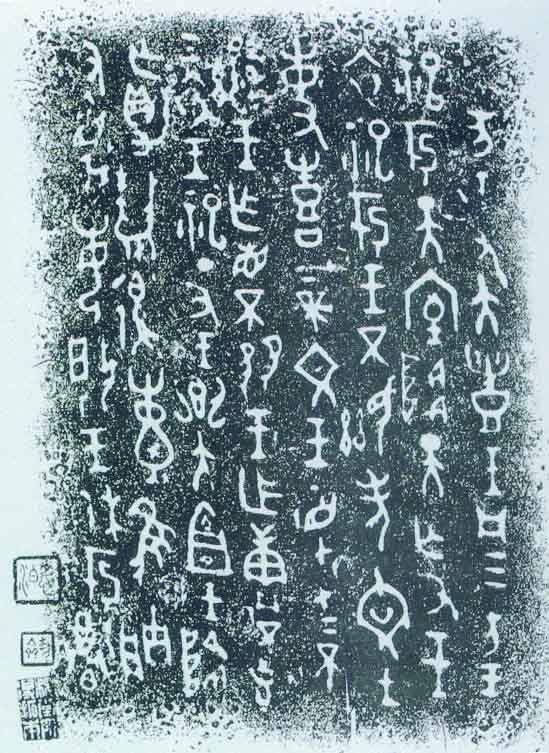 王又大豐王凡三方王
祀于天室降天亡又王
衣祀于王不顯考文王
事喜上帝文王監才上不
顯王乍省不王乍庚不克
气衣王祀丁丑王鄉大宜王降
亡爵復囊隹朕
又每揚王休于尊